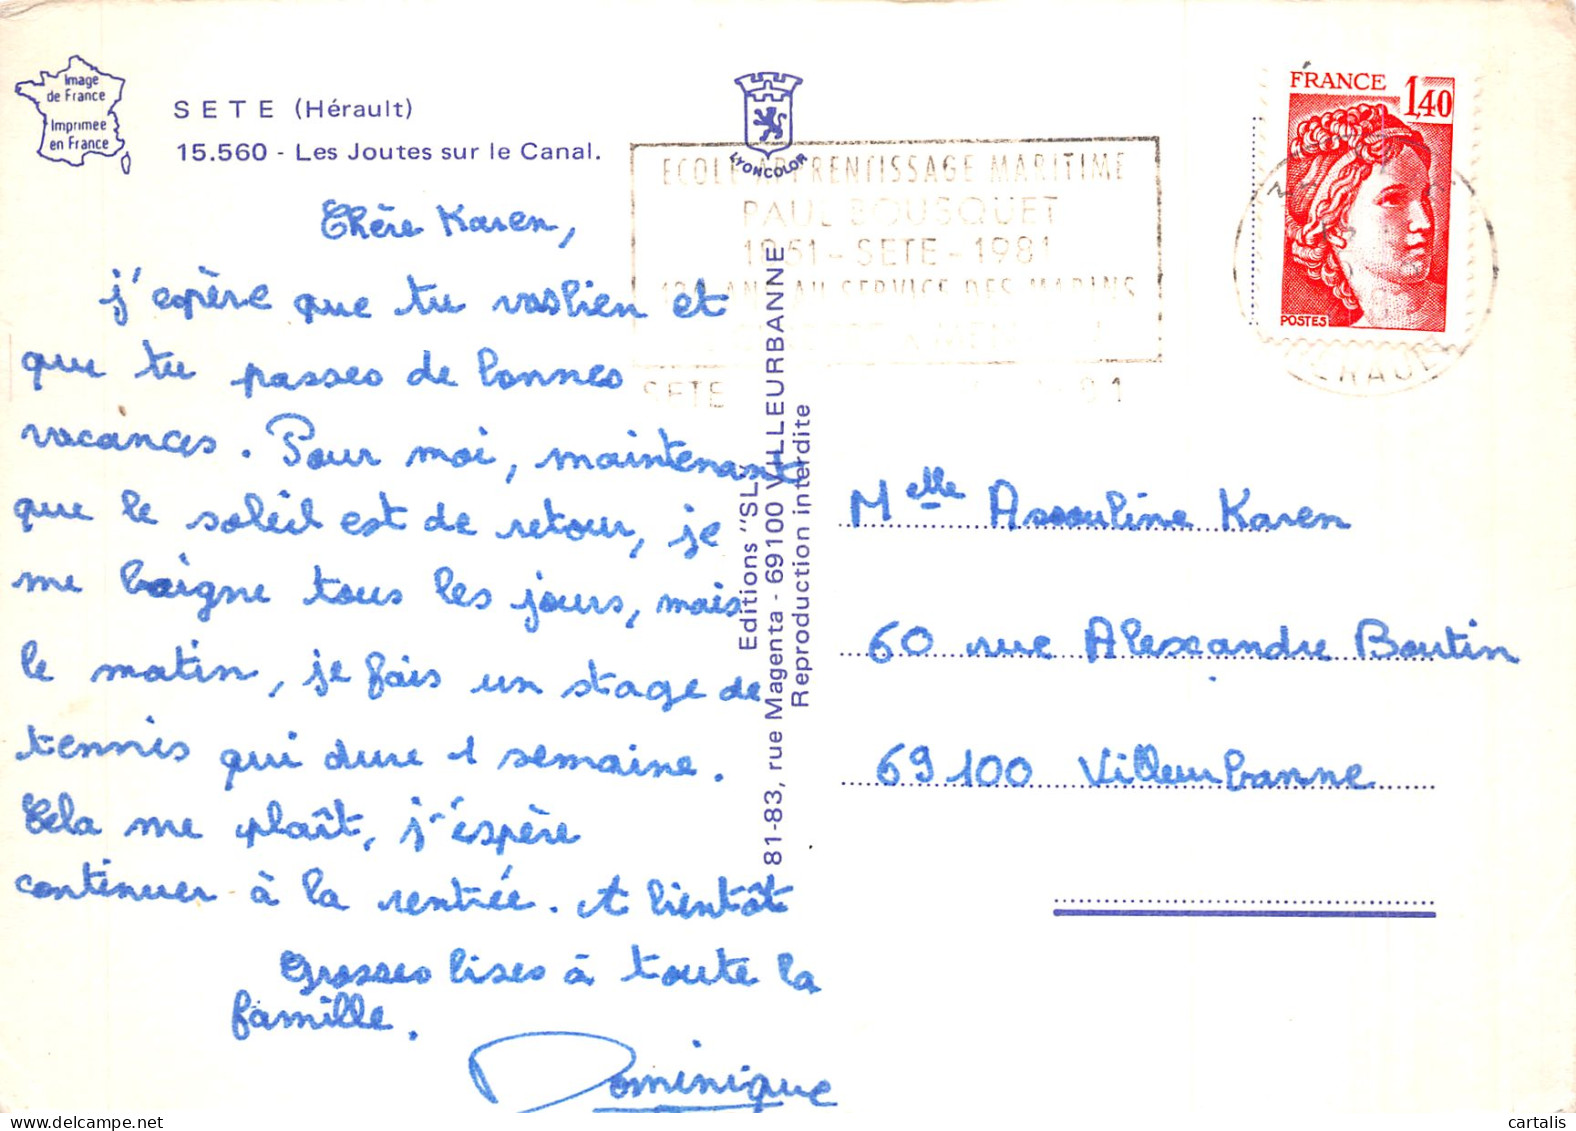 Image
de France
Imprimée
en France
SETE (Hérault)
15.560 - Les Joutes sur le Canal.
LYONCOLOR
ECOLE APPRENTISSAGE MARITIME
PAUL BOUSQUET
1851 - SETE - 1981
ANS AU SERVICE DES MARINS
SETE
FRANCE
1,40
POSTES
HERAULT
Chère Karen,
j'espère que tu vas bien et
que tu passes de bonnes
vacances. Pour moi, maintenant
que le soleil est de retour, je
me baigne tous les jours, mais
le matin, je fais un stage de
tennis qui dure 1 semaine.
Cela me plaît, j'espère
continuer à la rentrée. A bientôt
Grosses bises à toute la
famille.
Dominique
Editions "SL"
81-83, rue Magenta - 69100 VILLEURBANNE
Reproduction interdite
Melle Assouline Karen
60 rue Alexandre Boutin
69100 Villeurbanne
cartalis